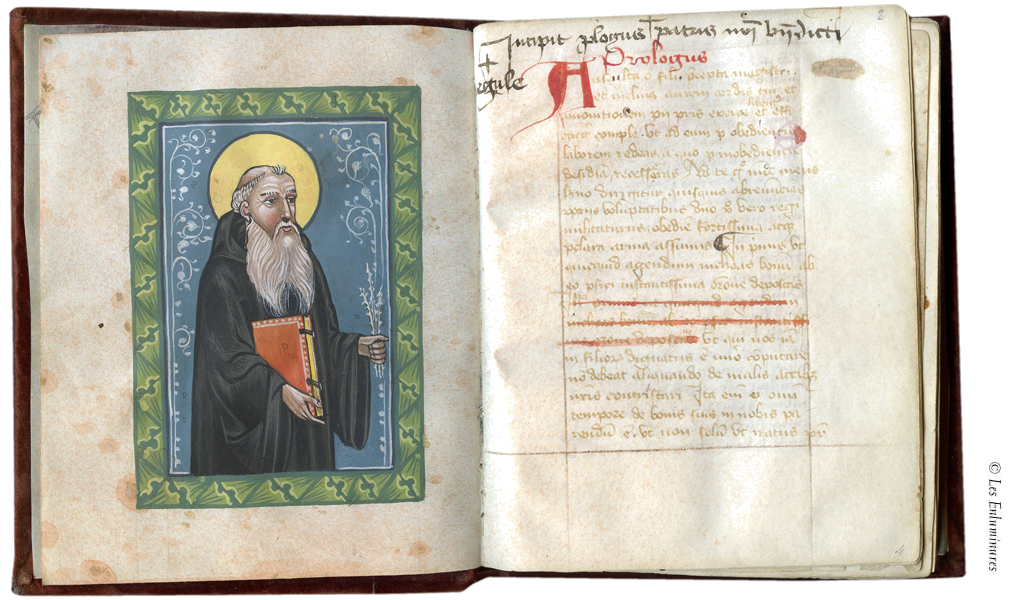 Incipit plogus patris nri
regule
Prologus
Ausculta o fili precepta magistri
et inclina aurem cordis tui et
libent
admonitionem pii pris excipe et effi
comple. Ut ad eum p obedientie
laborem redeas, a quo p inobedientie
desidia recesseras. Ad te g nuc meus
sermo dirigitur quisquis abrenucias
propriis voluptatibus dno vero regi
militaturus, obedie fortissima atq
pclara arma assumis In pmis ut
quicquid agendum inchoas bonu ab
eo pfici instantissima orone deposcas
ut qui nos ia
in filior dignatus e nuo coputare
no debeat aliquando de malis actibz
nris contristari Ita eni ei omi
tempore de bonis suis in nobis pa
rendu e. ut non solu ut iratus pr
2
© Les Enluminures